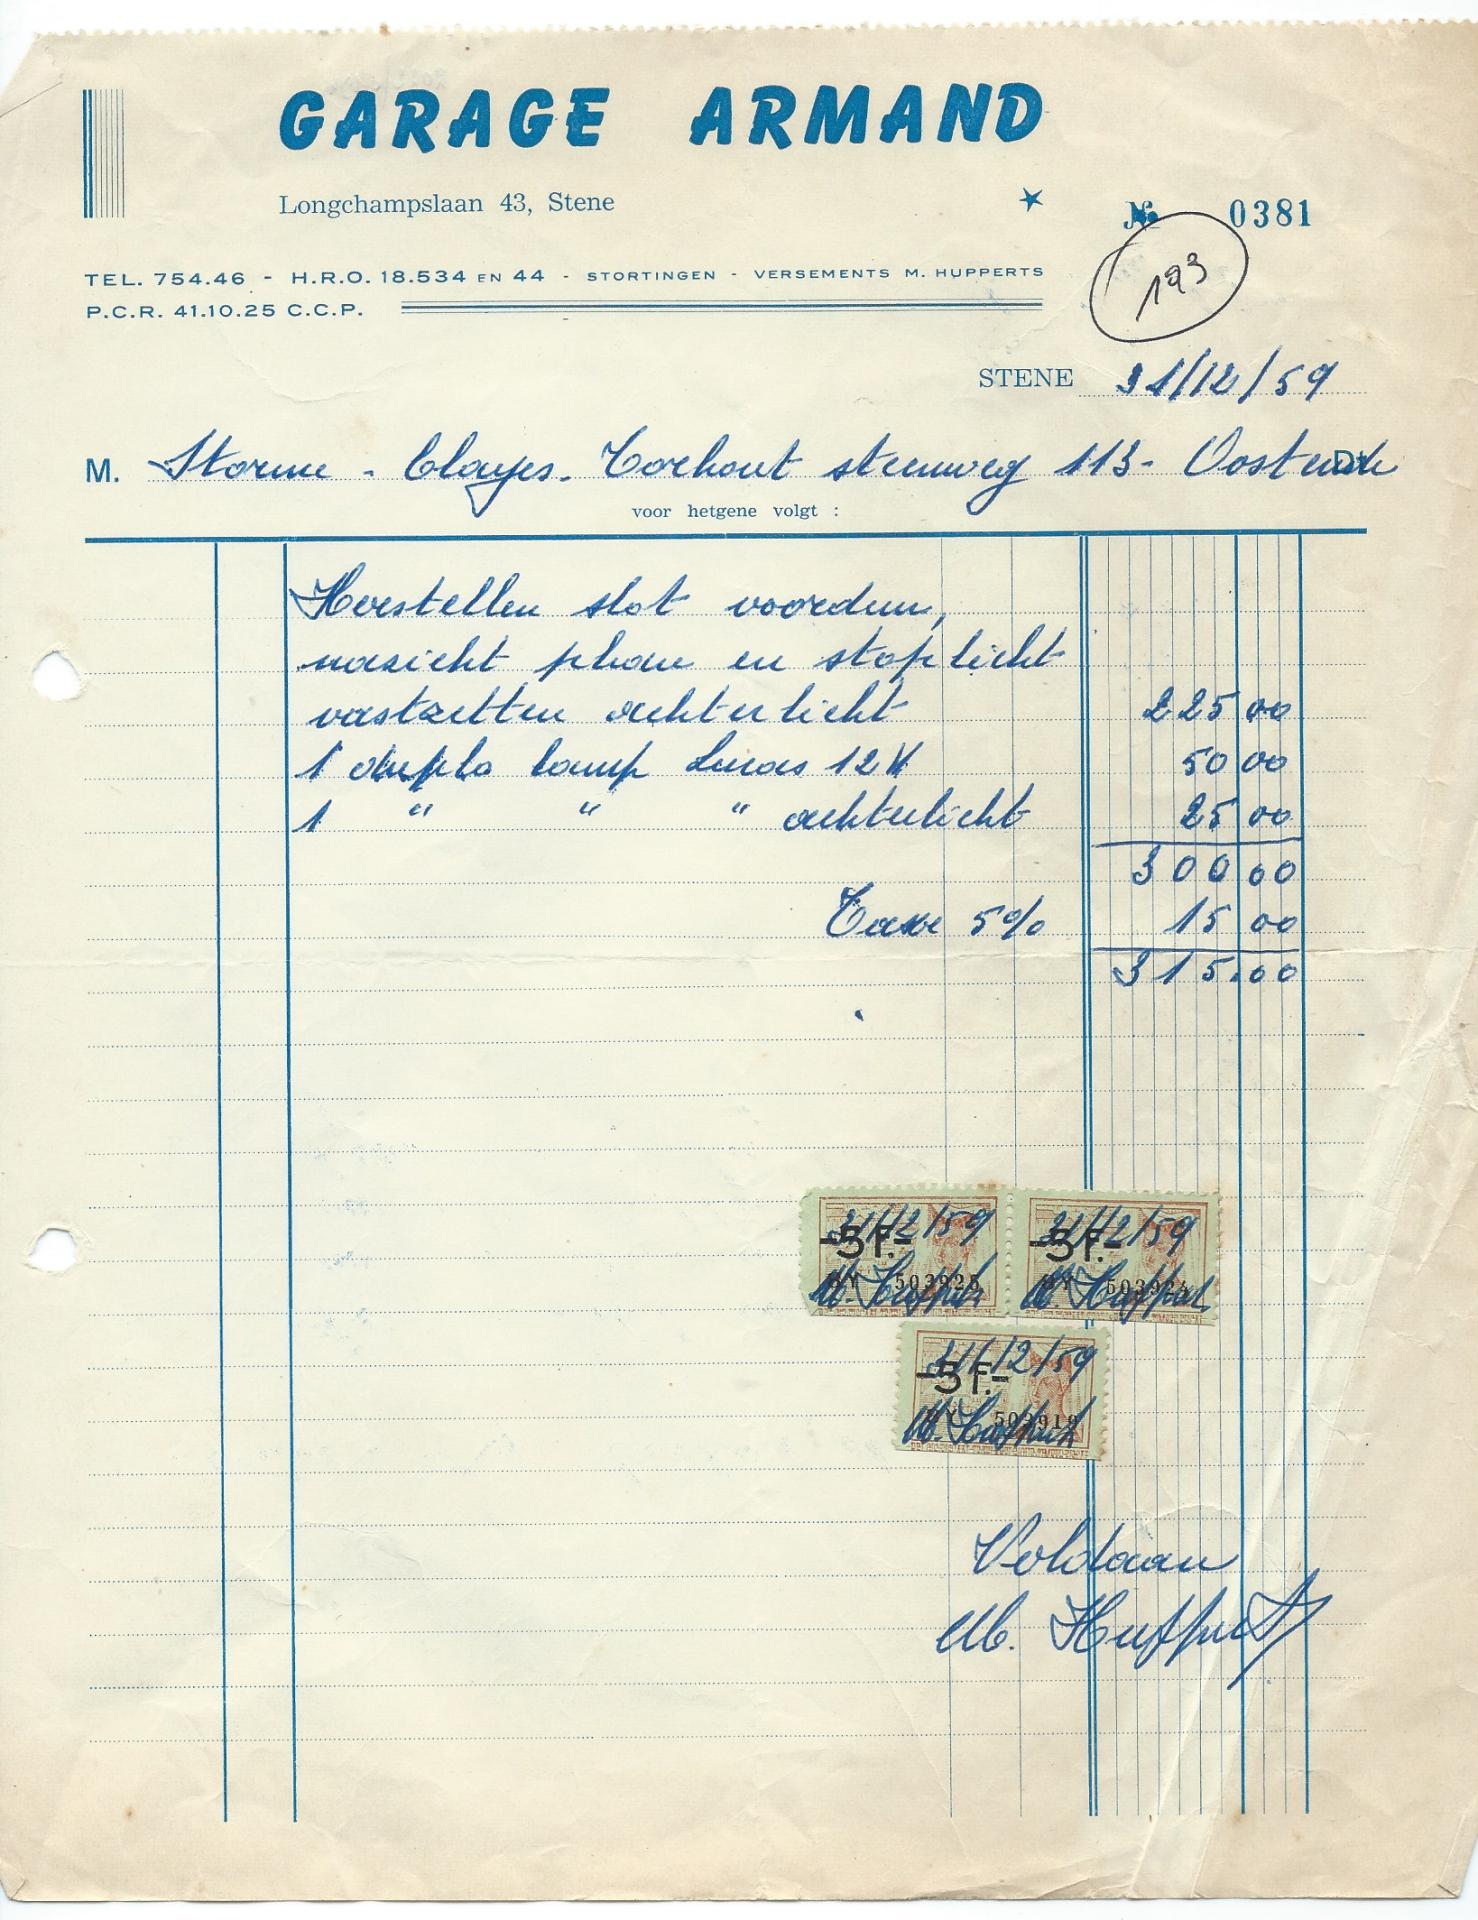 GARAGE ARMAND
Longchampslaan 43, Stene
№ 0381
193
TEL. 754.46 - H.R.O. 18.534 EN 44 - STORTINGEN - VERSEMENTS M. HUPPERTS
P.C.R. 41.10.25 C.C.P.
STENE 31/12/59
M. Storme - Clayes - Torhout steenweg 113 - Oostende Dt
voor hetgene volgt :
Herstellen slot voordeur,
nazicht phare en stoplicht
vastzetten achterlicht 225 00
1 duplo lamp Lucas 12 V 50 00
1 " " " achterlicht 25 00
300 00
Taxe 5% 15 00
315.00
31/12/59 31/12/59
-5 F.- -5 F.-
503925 503924
M. Hupperts M. Hupperts
31/12/59
-5 F.-
503919
M. Hupperts
Voldaan
M. Hupperts